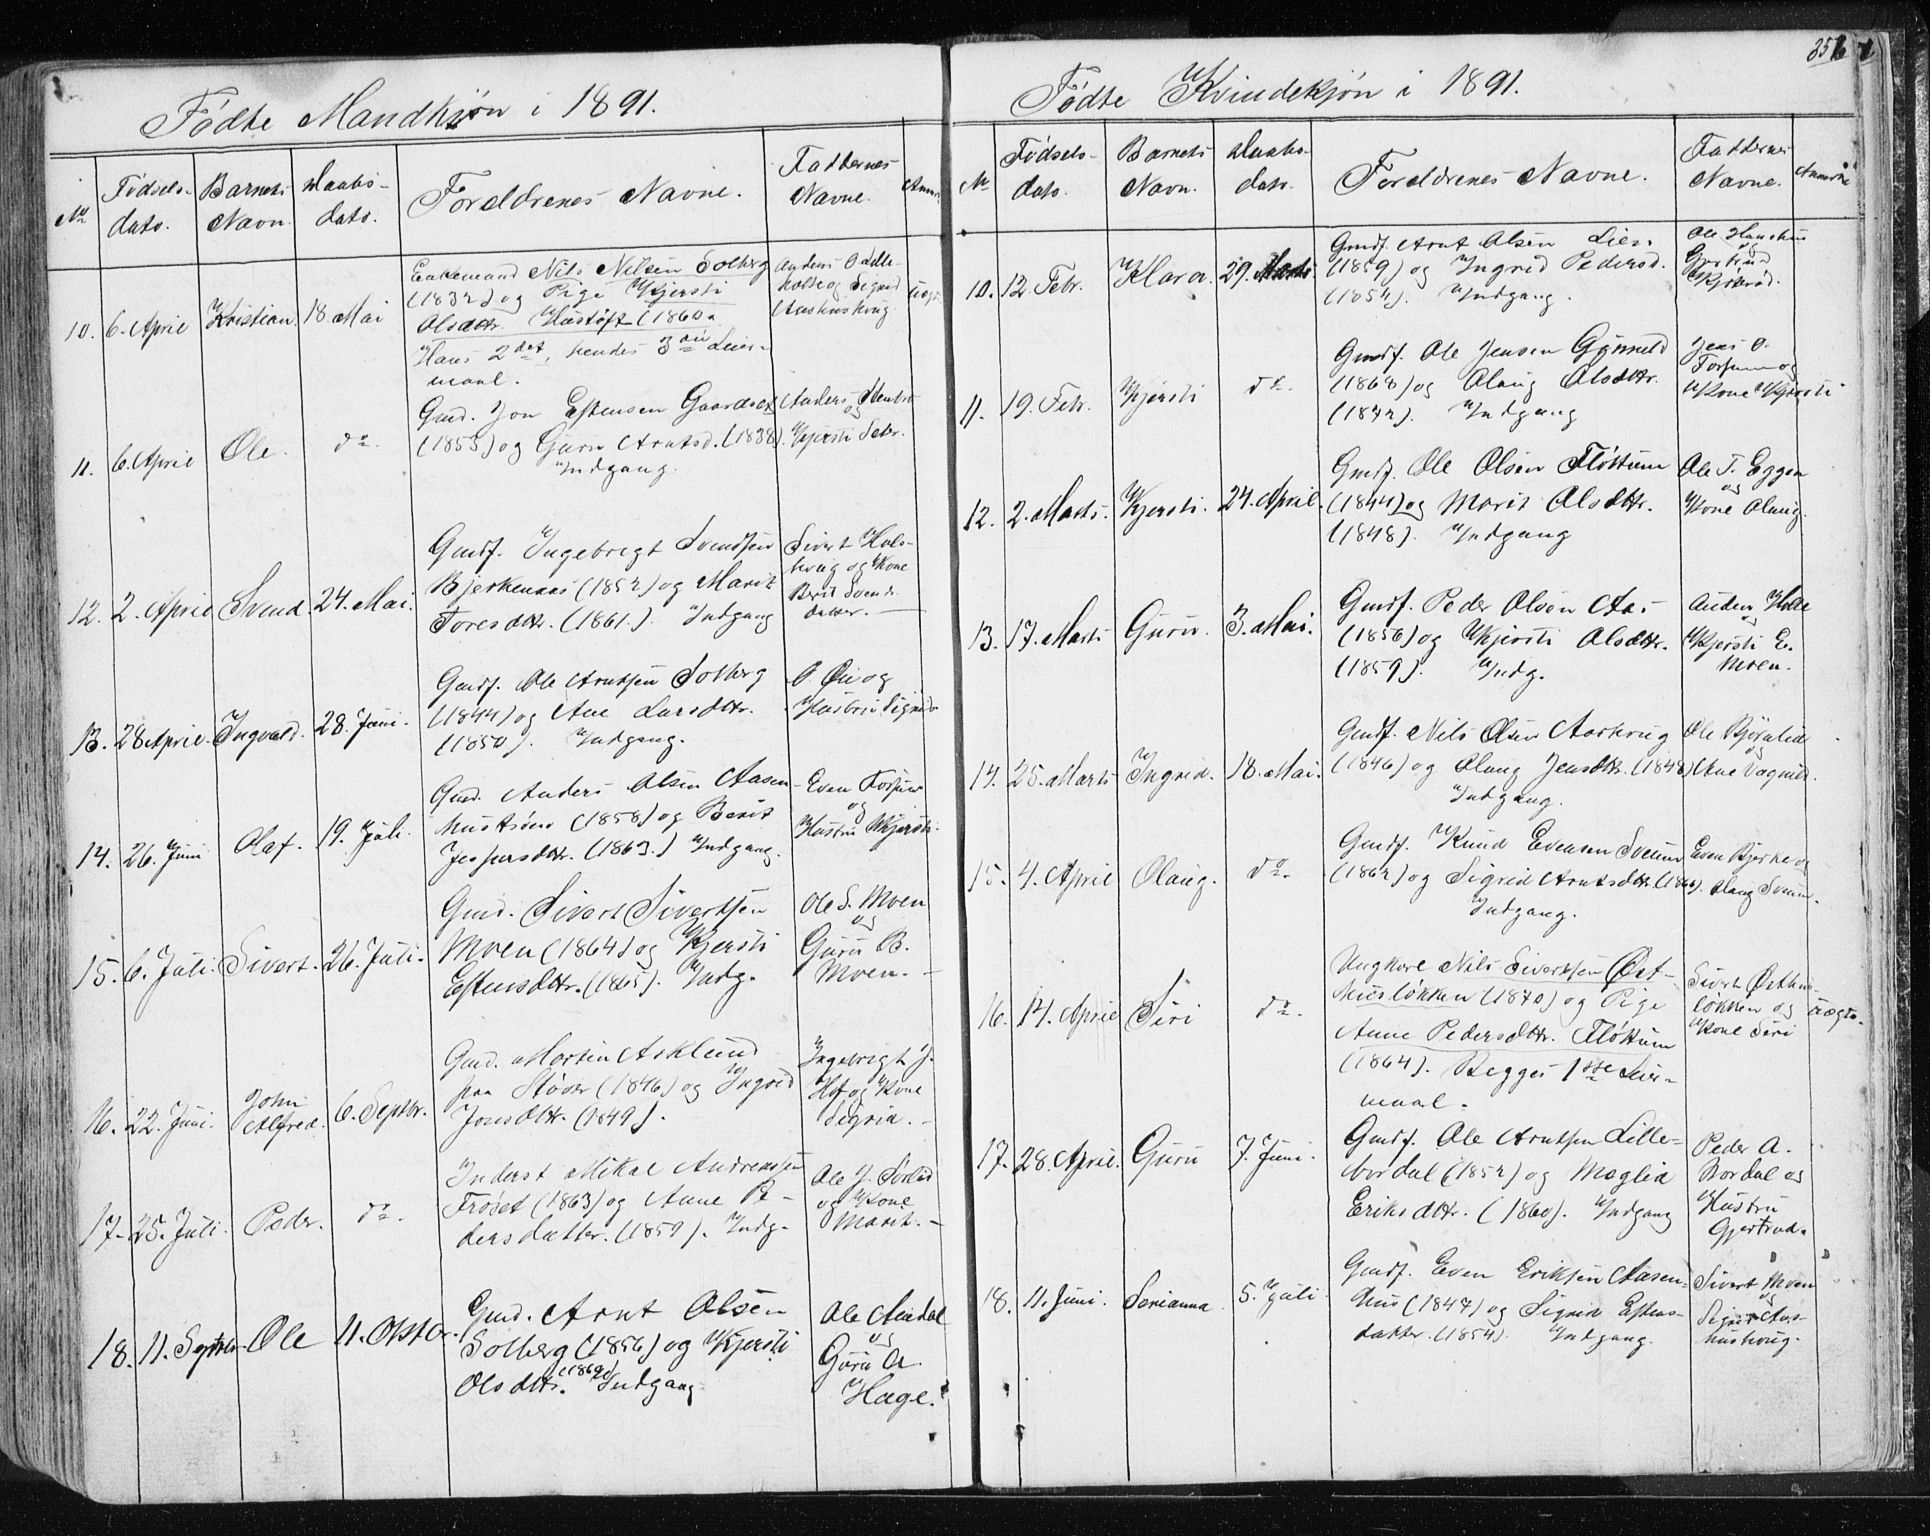 Fødte Mandkjøn i 1891.
No
Fødsels-
dato.
Barnets
Navn.
Daabs-
dato.
Forældrenes Navne.
Faddernes
Navne.
10. 6. April Kristian 18. Mai
Enkemand Nils Nilsen Solberg
(1832) og Pige Kjersti
Olsdttr. Hustøft (1860.
Hans 2det, hendes 3die Leier-
maal.
Anders O. Lille-
og Sigrid
Aushushoug
uægt.
11. 6. April Ole. do.
Gmd. Jon Estensen Gaardset
(1853) og Guru Arntsd. (1838)
Indgang.
Anders Stenbro
og
Kjersti Sebr.
12. 2. April Svend. 24. Mai.
Gmdf. Ingebrigt Svendsen
Bjerkenaas (1852) og Marit
Toresdttr. (1861.) Indgang
Sivert Hols-
houg og Kone
Berit Svends-
datter.
13. 28 April. Ingvald. 28. Juni.
Gmdf. Ole Arntsen Solberg
(1844) og Ane Larsdttr.
(1850). Indgang.
O. Øie og
Hustru Sigrid
14. 26. Juni Olaf. 19. Juli.
Gmd. Anders Olsen Aasen-
(1858) og Berit
Jespersdttr. (1863.) Indgang.
Even Forsum
og
Hustru Kjersti.
15. 6. Juli. Sivert. 26. Juli.
Gmd. Sivert Sivertsen
Moen (1864) og Kjersti
Estensdttr. (1865). Indg.
Ole S. Moen
og
Guru B.
Moen.
16. 22. Juni. John Alfred. 6. Septbr.
Gmd. Morten Asklund
paa Støren (1846) og Ingrid
Jonsdttr. (1849).
Ingebrigt J.
Hof og Kone
Sigrid.
17. 25. Juli. Peder. do.
Inderst Mikal Andreassen
Frøset (1863) og Anne Pe-
dersdatter. (1859). Indg.
Ole J. Sørlid
og Kone
Marit.
18. 11. Septbr. Ole 11. Oktbr.
Gmd. Arnt Olsen
Solberg (1856) og Kjersti
Olsdttr. (1869) Indgang
Ole Aindal
og
Guru A.
Hage.
Fødte Kvindekjøn i 1891.
No
Fødsels-
dato.
Barnets
Navn.
Daabs-
dato.
Forældrenes Navne.
Faddernes
Navne.
10. 12 Febr. Klara. 29. Marts
Gmdf. Arnt Olsen Lien
(1859) og Ingrid Pedersd.
(1854). Indgang.
Ole Haushus
og
Gjertrud
11. 19. Febr. Kjersti do.
Gmdf. Ole Jensen Gynnild
(1868) og Olaug Olsdttr.
(1872). Indgang
Jens O.
Forsum og
Kone Kjersti
12. 2. Marts. Kjersti. 24. April.
Gmdf. Ole Olsen Fløttum
(1844) og Marit Olsdttr.
(1848). Indgang
Ole T. Eggen
og
Kone Olaug.
13. 17. Marts Guru. 3. Mai.
Gmdf. Peder Olsen Aas
(1856) og Kjersti Olsdttr.
(1859). Indg.
Anders Hole
og
Kjersti E.
Moen.
14. 25. Marts Ingrid. 18. Mai.
Gmdf. Nils Olsen Aarhaug
(1846) og Olaug Jensdttr. (1848)
Indgang.
Ole Bjørnlid
og
Ane Vagnild.
15. 4. April Olaug. do.
Gmdf. Knud Evensen Sveum
(1862) og Sigrid Arntsdttr. (1860).
Indgang.
Even Bjerke og
Olaug Sveum.
16. 14. April Siri do.
Ungkarl Nils Sivertsen Øst-
husløkken (1870) og Pige
Anne Pedersdttr. Fløttum
(1864). Begges 1ste Leier-
maal.
Sivert Østhus-
løkken og
Kone Siri
uægte.
17. 28. April. Guru 7. Juni.
Gmdf. Ole Arntsen Lille-
bordal (1852) og Maglid
Eriksdttr. (1860). Indgang
Peder A.
Bordal og
Hustru
Gjertrud.
18. 11. Juni. Serianna 5. Juli
Gmdf. Even Eriksen Aasen-
hus (1847) og Sigrid Estens-
datter. (1854). Indgang.
Sivert Moen
og
Sigrid Aus-
hushoug.